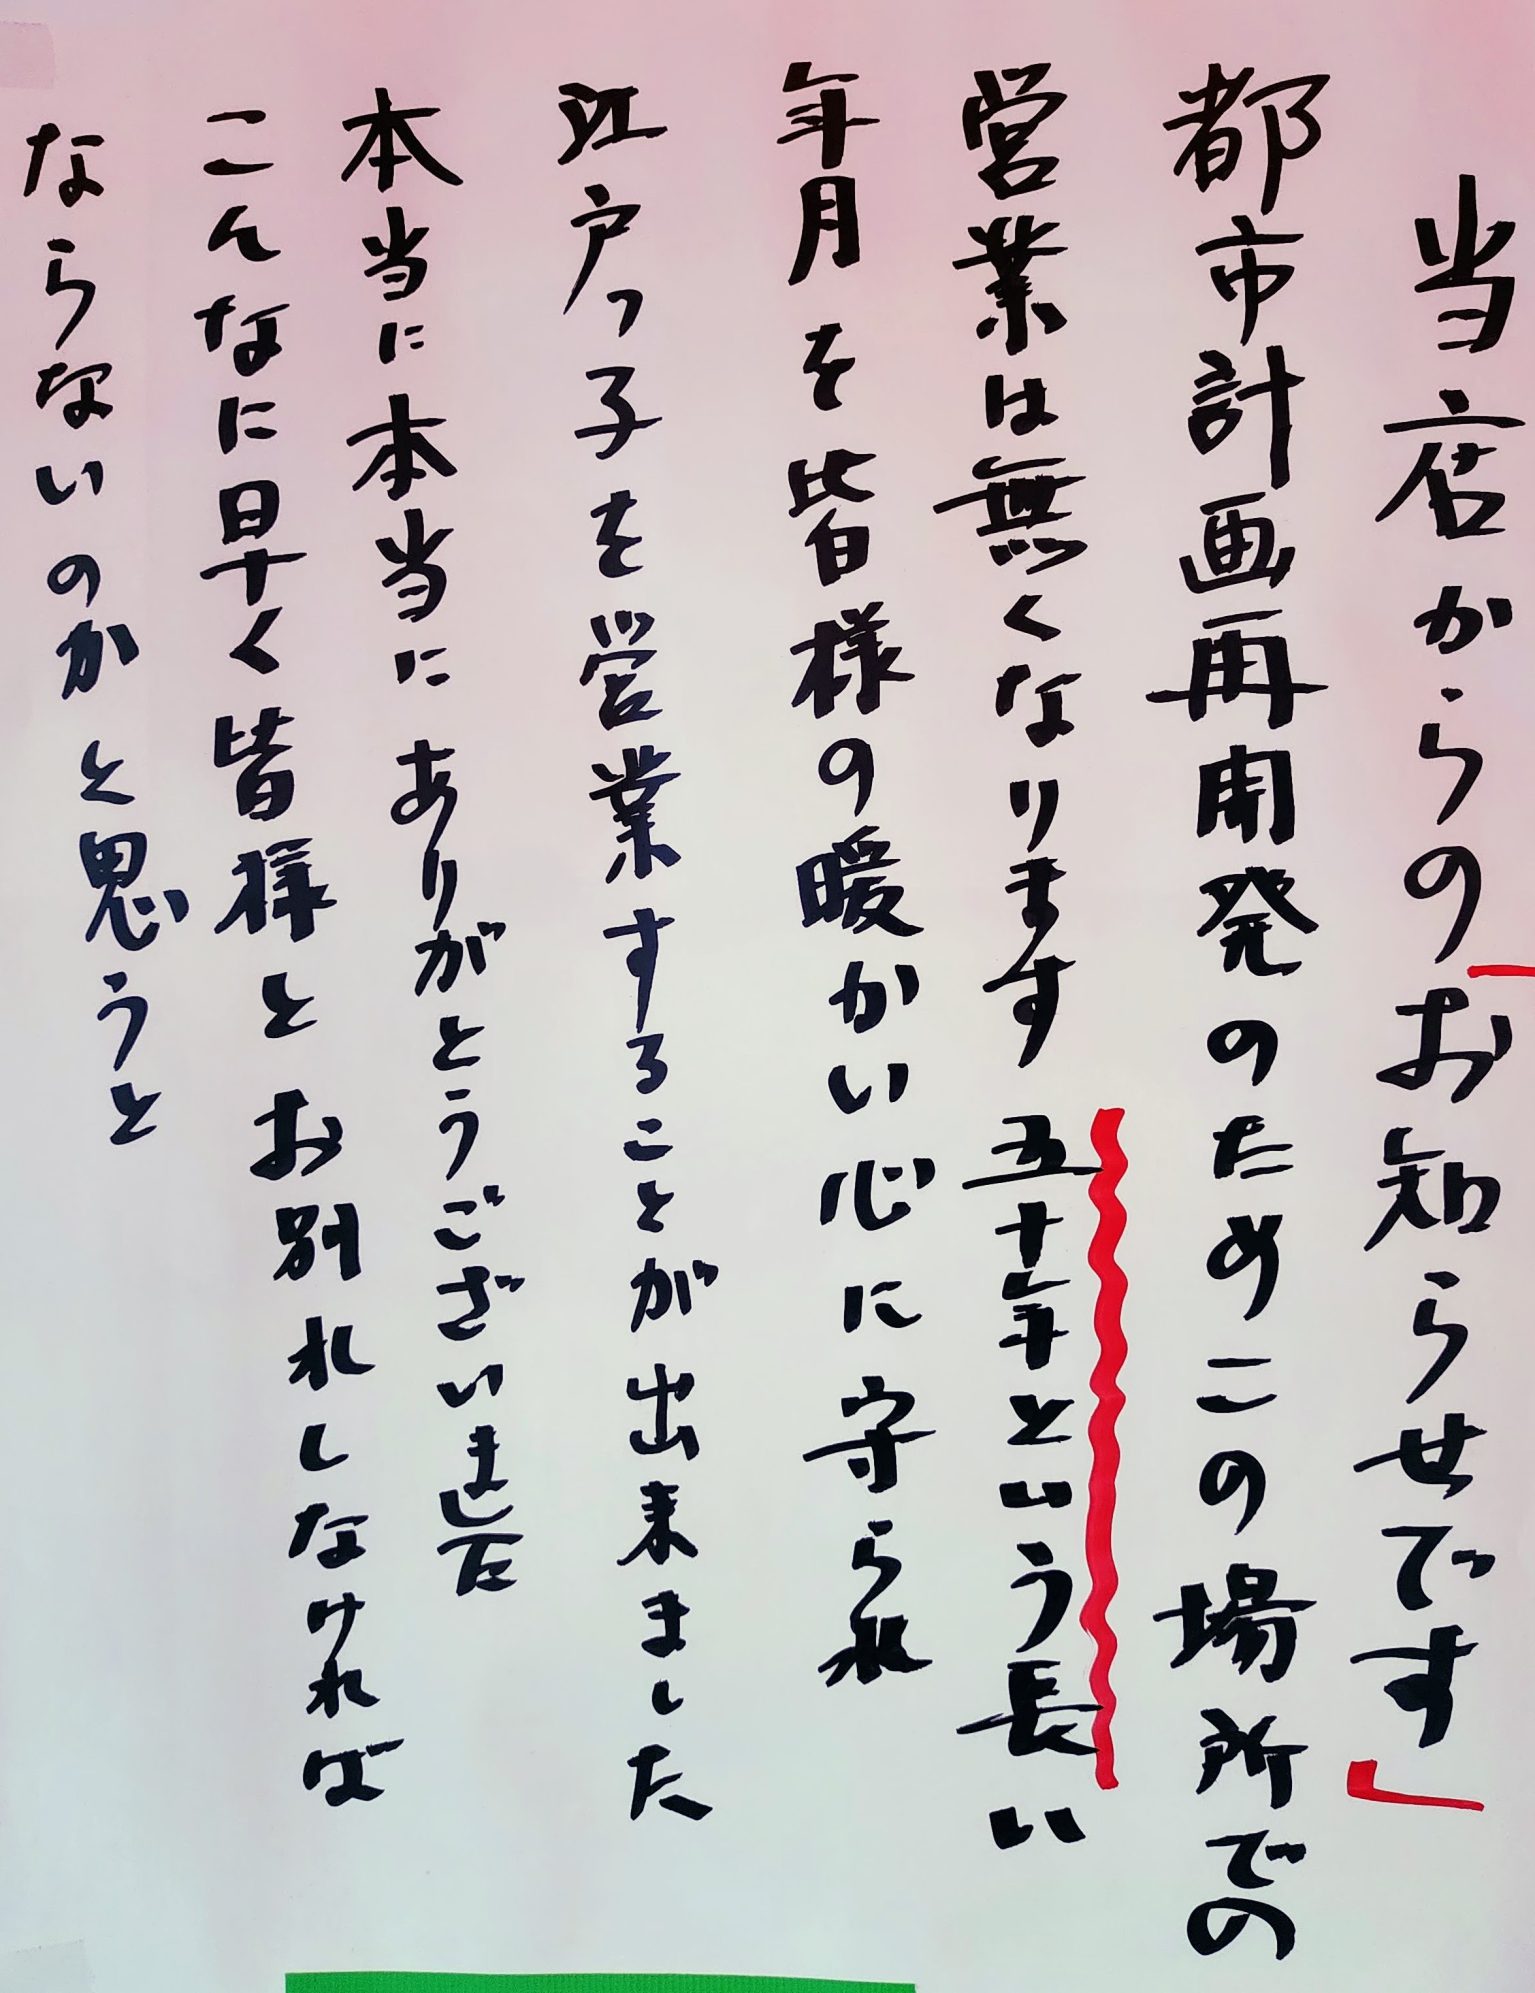 当店からの「お知らせです」
都市計画再開発のためこの場所での
営業は無くなります 五十年という長い
年月を皆様の暖かい心に守られ
江戸っ子を営業することが出来ました
本当に本当にありがとうございました
こんなに早く皆様とお別れしなければ
ならないのかと思うと